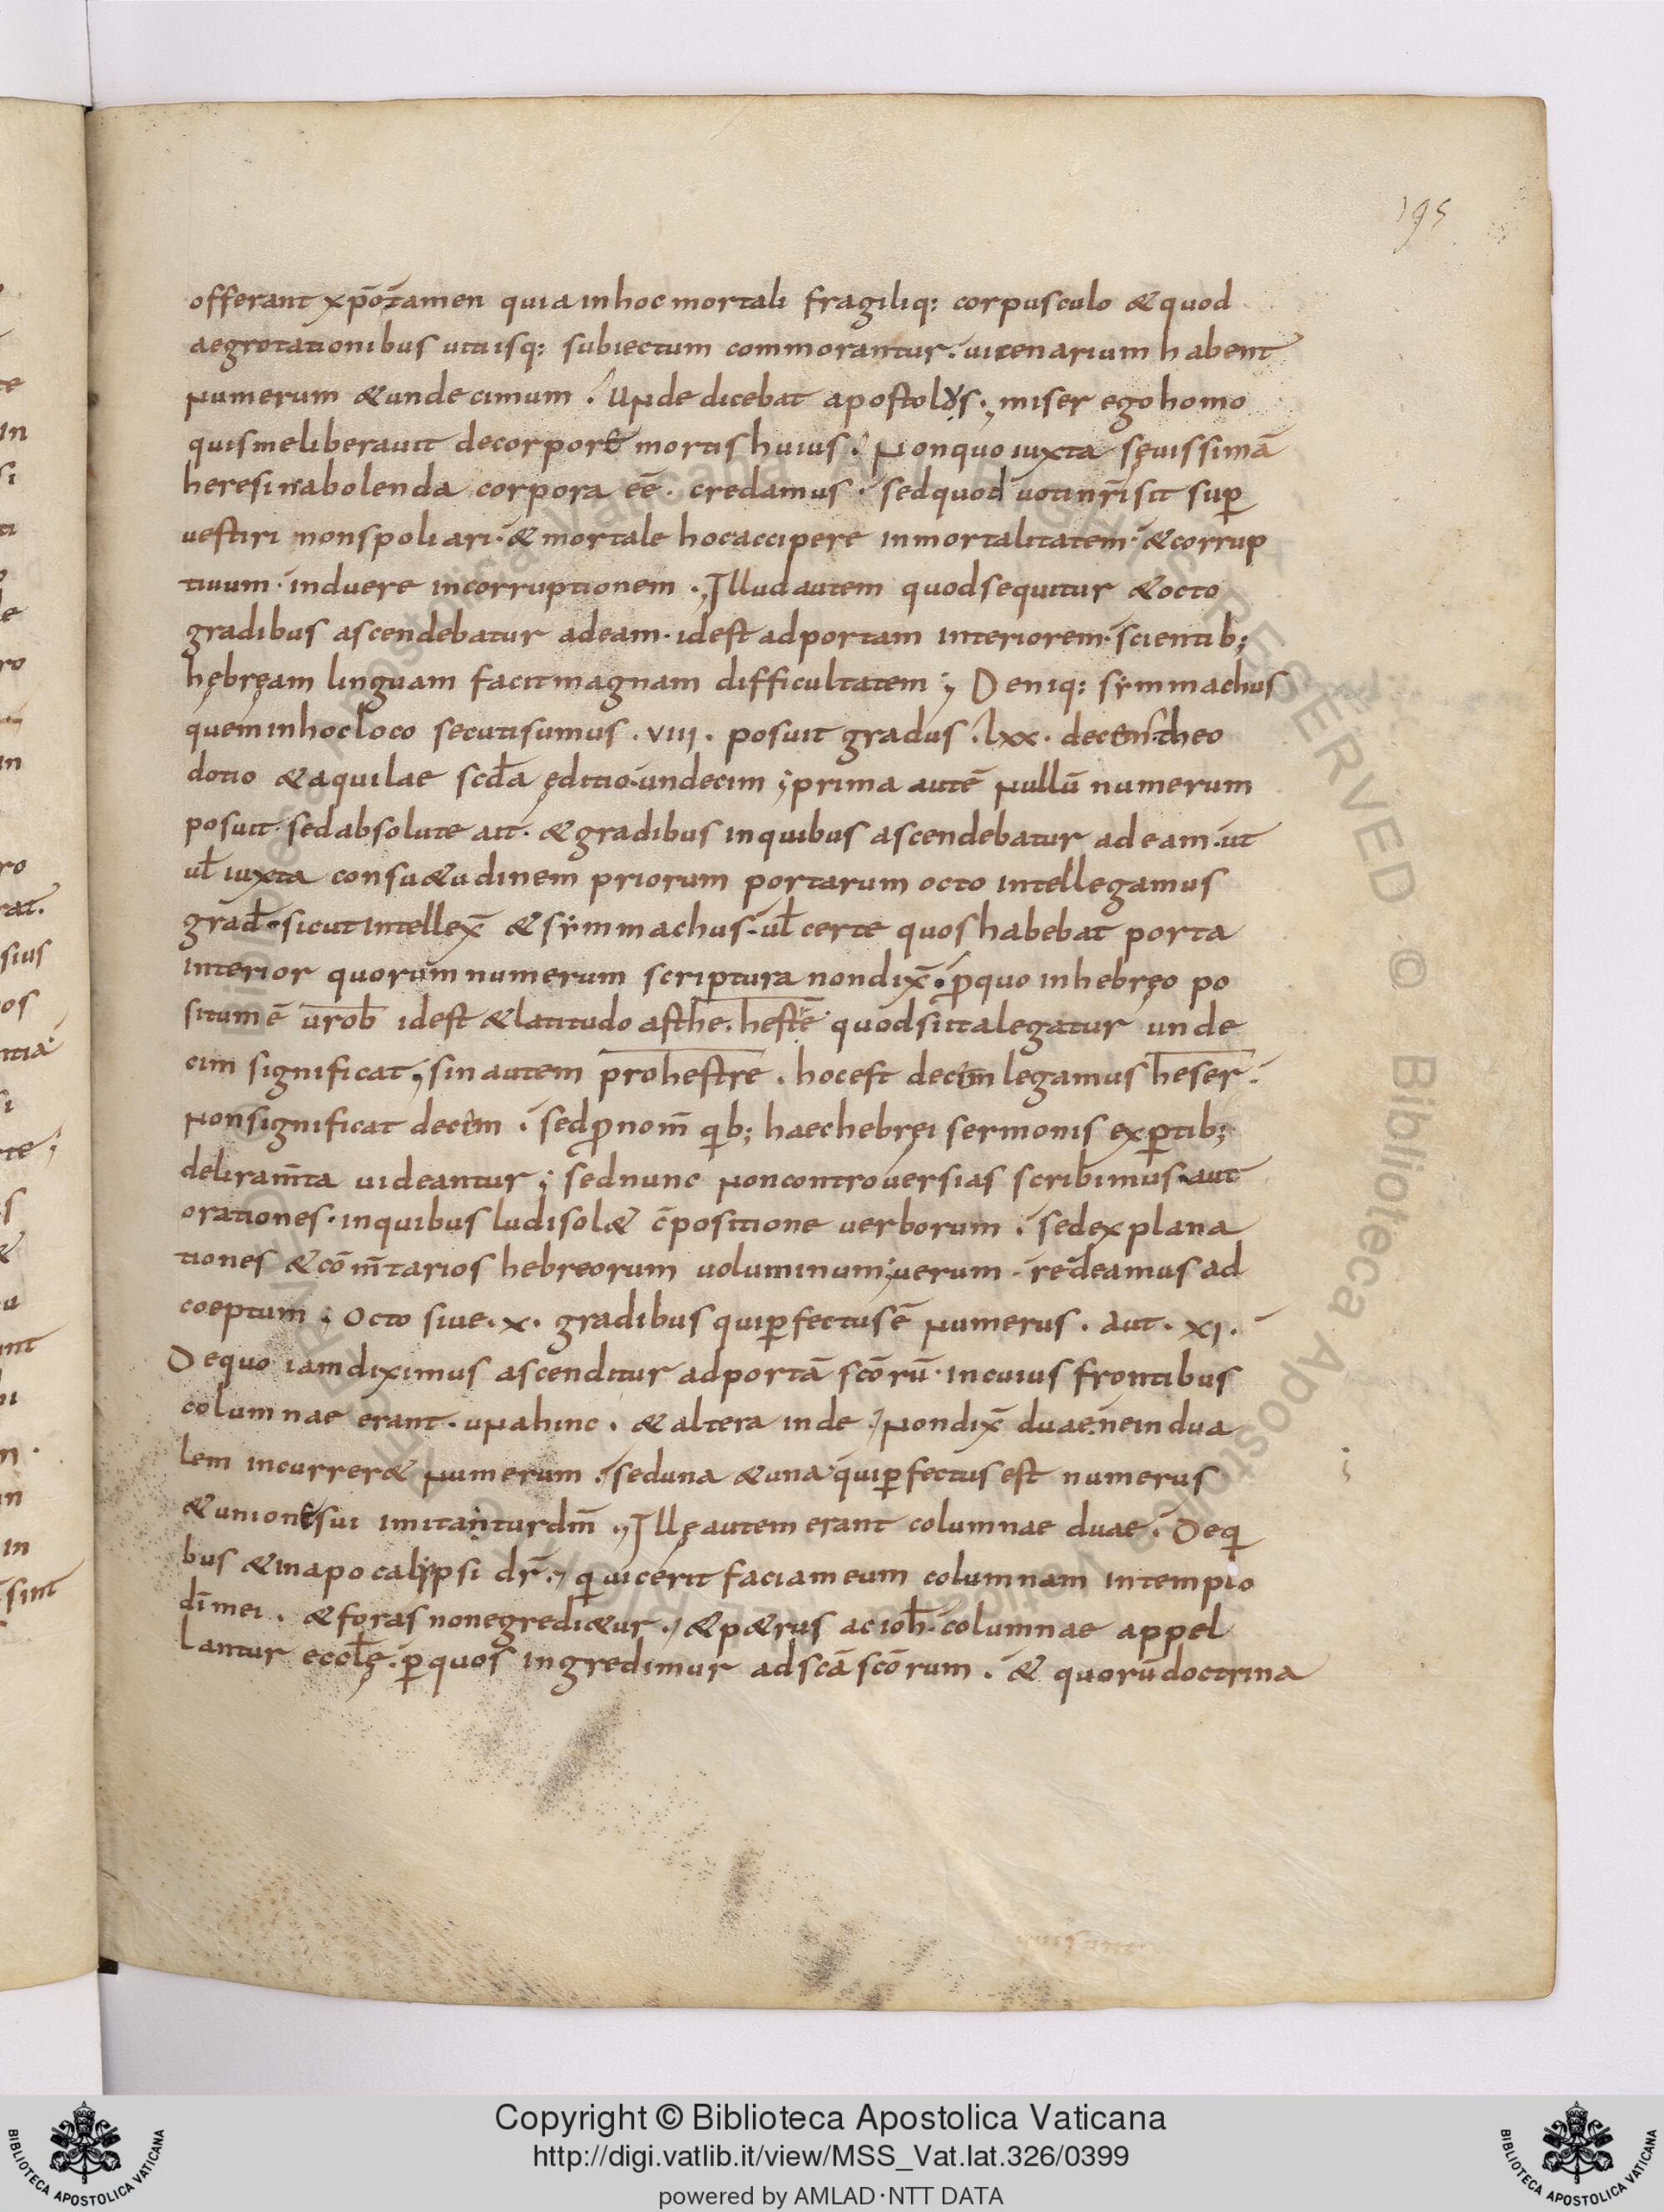 195
offerant xp̄o tamen quia in hoc mortali fragiliq: corpusculo & quod
aegrotationibus uitiisq: subiectum commorantur. uicenarium habent
numerum & undecimum. Unde dicebat apostolus; miser ego homo
quis me liberauit de corpore mortis huius. Non quo iuxta sęuissimā
heresim abolenda corpora eē. credamus. sed quod uoti nr̄i sit sup̄
uestiri non spoliari. & mortale hoc accipere inmortalitatem. & corrup
tiuum. induere incorruptionem. Illud autem quod sequitur & octo
gradibus ascendebatur ad eam. id est ad portam interiorem. scientib;
hębręam linguam facit magnam difficultatem; Deniq: sẏmmachus
quem in hoc loco secuti sumus. VIII. posuit gradus. lxx. decem. theo
dotio & aquilae scd̄a ęditio. undecim; prima autē nullū numerum
posuit. sed absolute ait. & gradibus in quibus ascendebatur ad eam. ut
ul̄ iuxta consu&udinem priorum portarum octo intellegamus
grad̄. sicut intellex̄ & sẏmmachus. ul̄ certe quos habebat porta
interior quorum numerum scriptura non dix̄. p̄ quo in hebręo po
situm ē urob̄ id est & latitudo asthe. hestē quod si ita legatur unde
cim significat; sin autem prohestre. hoc est decim legamus heser.
non significat decem. sed p̄nom̄ qib; haec hebręi sermonis exp̄tib;
deliram̄ta uideantur; sed nunc non controuersias scribimus. aut
orationes. in quibus ludi sol& c̄positione uerborum. sed explana
tiones & com̄tarios hebreorum uoluminum; uerum. redeamus ad
coeptum; Octo siue. x. gradibus qui p̄fectus ē numerus. Aut. XI.
De quo iam diximus ascenditur ad portā scōrū. in cuius frontibus
columnae erant. una hinc. & altera inde. non dix̄ duae. ne in dua
lem incurrer& numerum. sed una & una. qui p̄fectus est numerus
& unione sui imitantur dm̄. Illę autem erant columnae duae. De qi
bus & in apocalẏpsi dr̄. qi uicerit faciam eum columnam in templo
dī mei. & foras non egredi&ur. & p&rus ac ioh̄. columnae appel
lantur eccl̄ę. p̄ quos ingredimur ad scā scōrum. & quorū doctrina
Copyright © Biblioteca Apostolica Vaticana
http://digi.vatlib.it/view/MSS_Vat.lat.326/0399
powered by AMLAD·NTT DATA
BIBLIOTECA APOSTOLICA VATICANA
BIBLIOTECA APOSTOLICA VATICANA